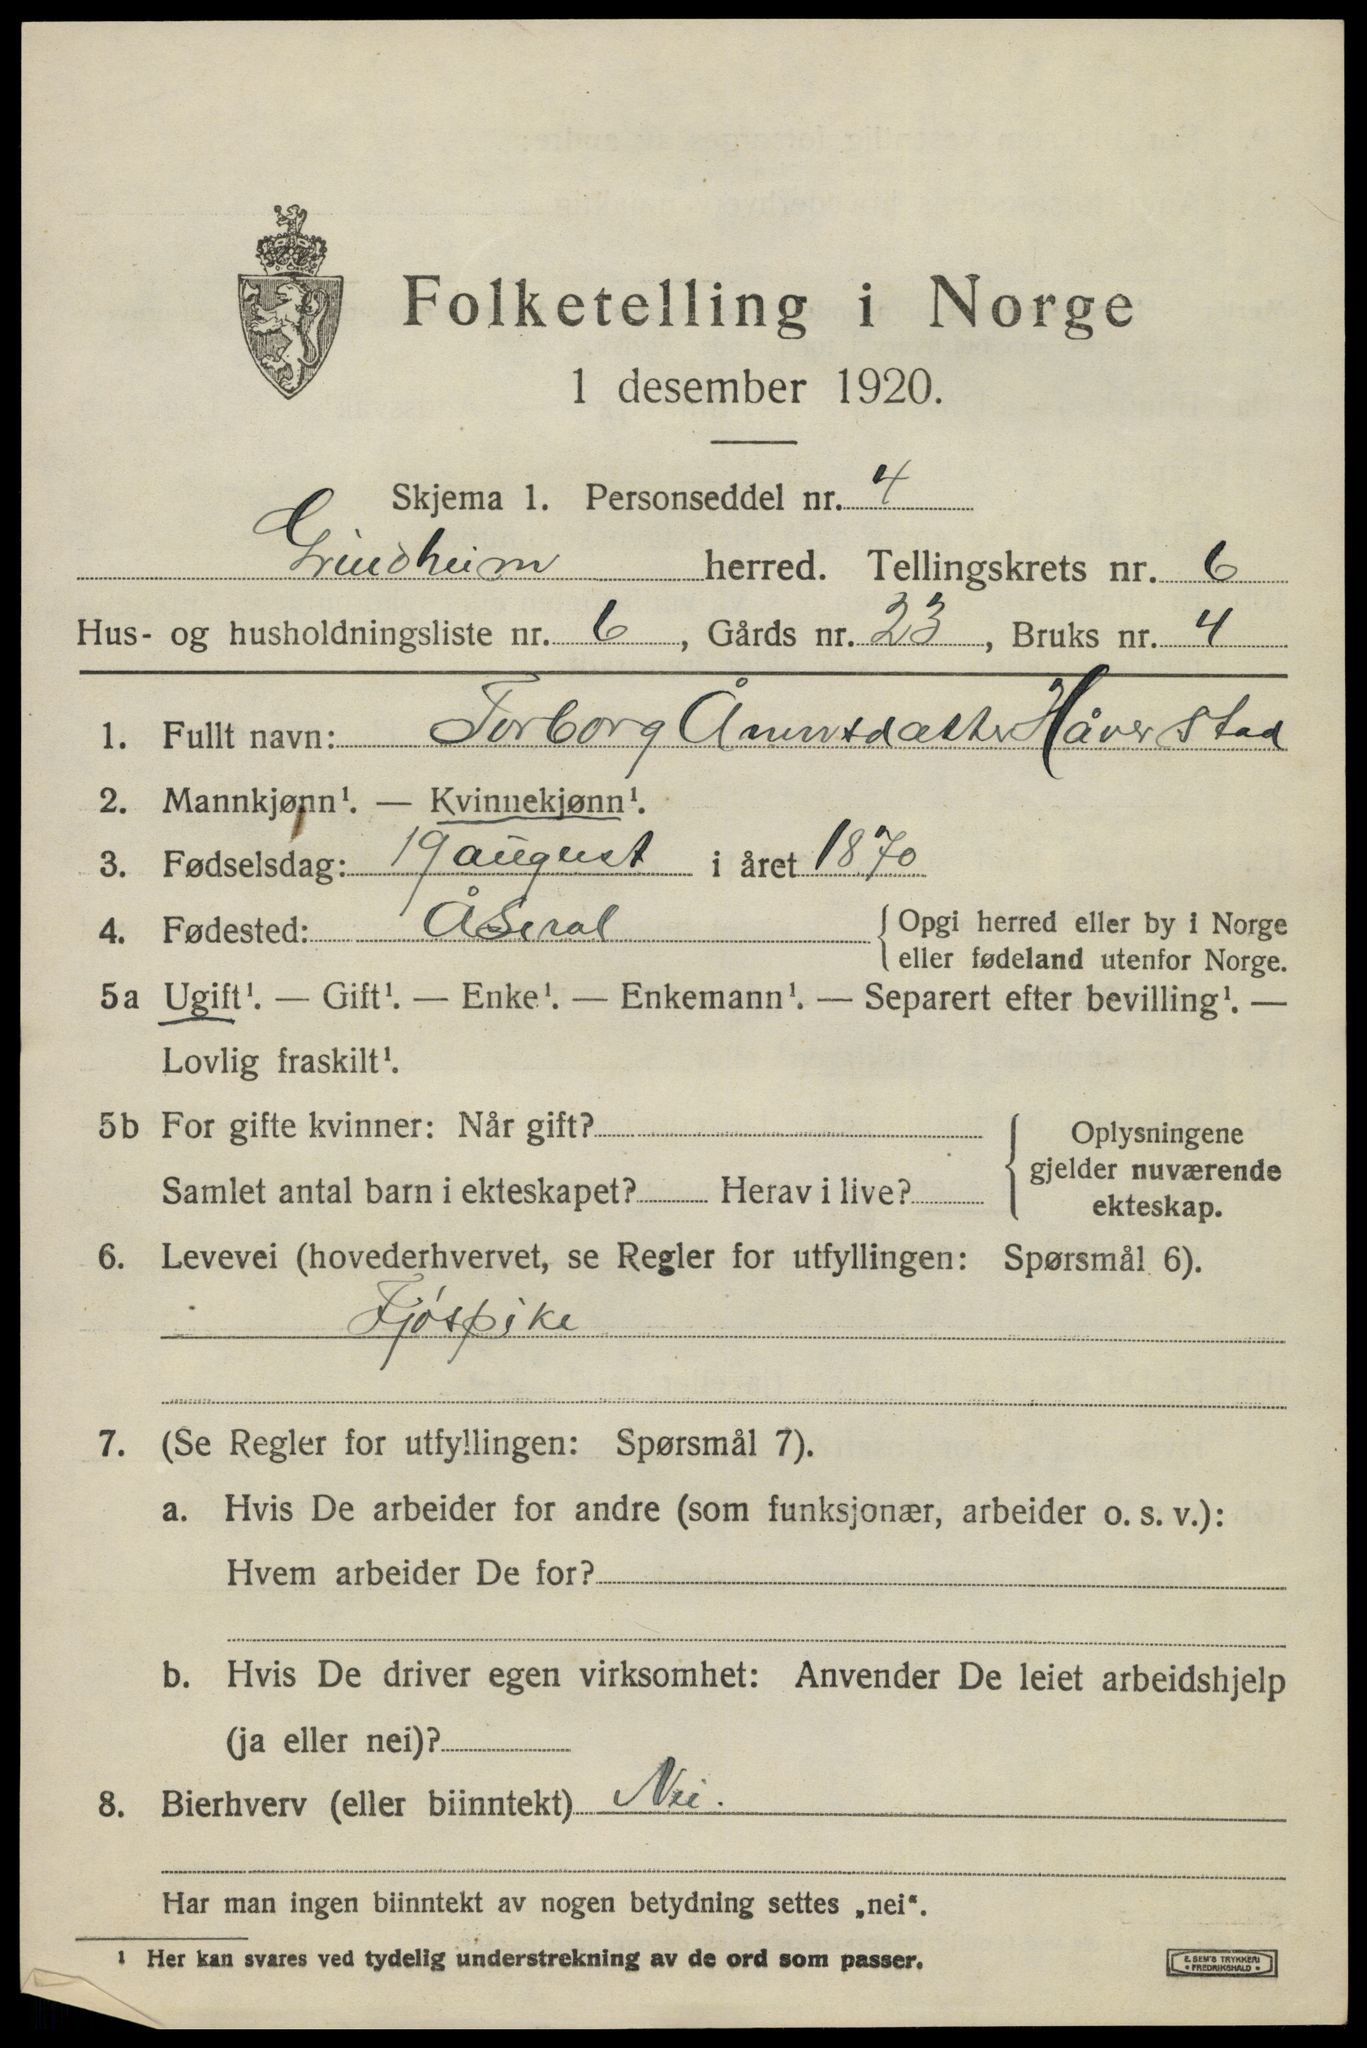 Folketelling i Norge
1 desember 1920.
Skjema 1. Personseddel nr. 4
Grindheim herred. Tellingskrets nr. 6
Hus- og husholdningsliste nr. 6, Gårds nr. 23, Bruks nr. 4
1. Fullt navn: Torborg Ånensdatter Håverstad
2. Mannkjønn¹. — Kvinnekjønn¹.
3. Fødselsdag: 19 august i året 1870
4. Fødested: Åseral { Opgi herred eller by i Norge
eller fødeland utenfor Norge.
5a Ugift¹. — Gift¹. — Enke¹. — Enkemann¹. — Separert efter bevilling¹. —
Lovlig fraskilt¹.
5b For gifte kvinner: Når gift?
Samlet antal barn i ekteskapet? Herav i live?
Oplysningene
gjelder nuværende
ekteskap.
6. Levevei (hovederhvervet, se Regler for utfyllingen: Spørsmål 6).
Fjøspike
7. (Se Regler for utfyllingen: Spørsmål 7).
a. Hvis De arbeider for andre (som funksjonær, arbeider o. s. v.):
Hvem arbeider De for?
b. Hvis De driver egen virksomhet: Anvender De leiet arbeidshjelp
(ja eller nei)?
8. Bierhverv (eller biinntekt) Nei.
Har man ingen biinntekt av nogen betydning settes „nei“.
¹ Her kan svares ved tydelig understrekning av de ord som passer.
E. SEM'S TRYKKERI
• FREDRIKSHALD •